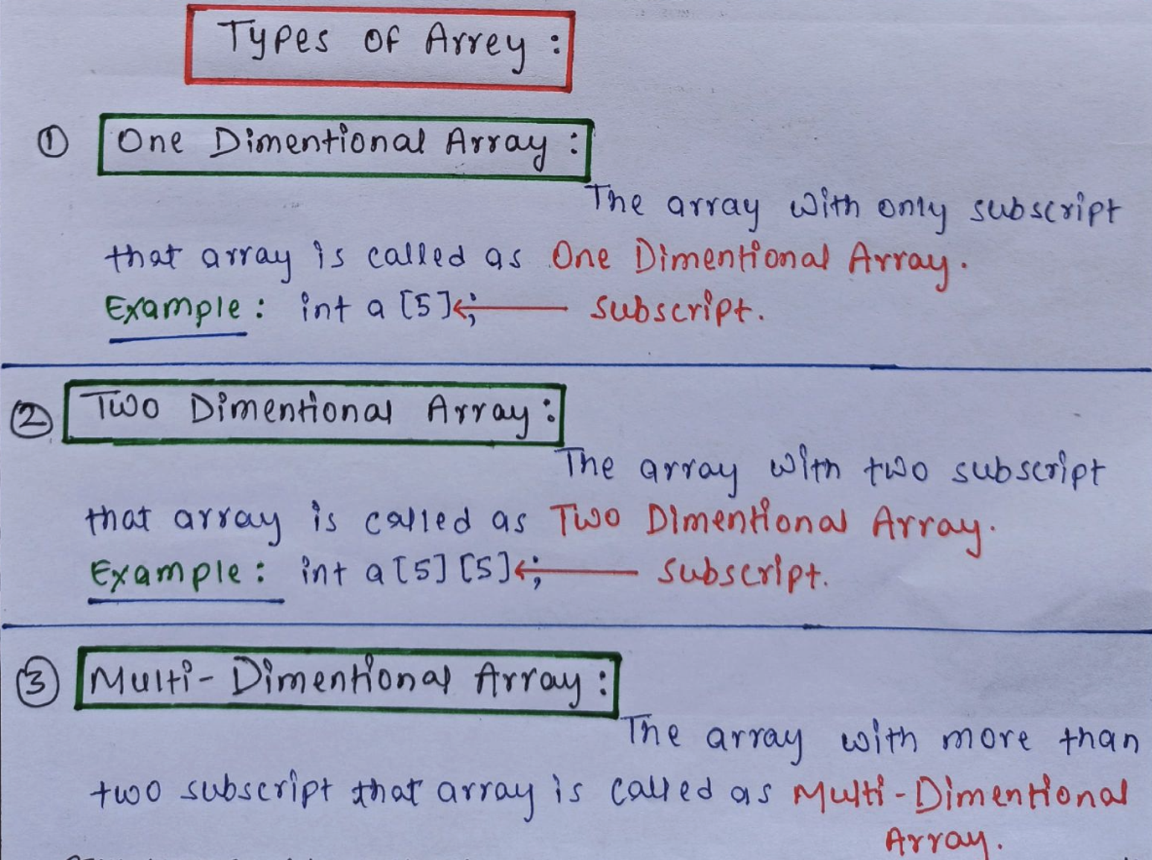 Types of Arrey :
① One Dimentional Array :
The array with only subscript
that array is called as One Dimentional Array.
Example : int a [5]; ← subscript.
② Two Dimentional Array :
The array with two subscript
that array is called as Two Dimentional Array.
Example : int a [5] [5]; ← subscript.
③ Multi-Dimentional Array :
The array with more than
two subscript that array is called as Multi-Dimentional
Array.